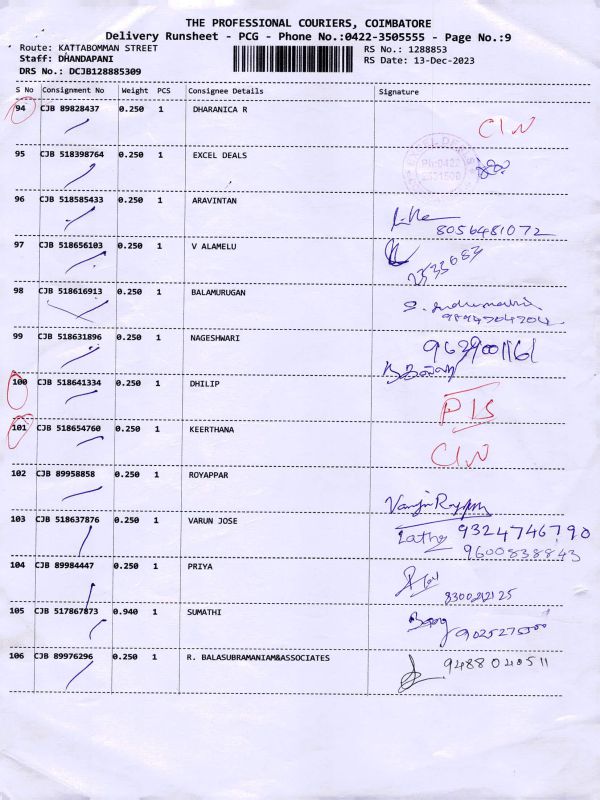 THE PROFESSIONAL COURIERS, COIMBATORE
Delivery Runsheet - PCG - Phone No.:0422-3505555 - Page No.:9
Route: KATTABOMMAN STREET RS No.: 1288853
Staff: DHANDAPANI RS Date: 13-Dec-2023
DRS No.: DCJB128885309
S No Consignment No Weight PCS Consignee Details Signature
94 CJB 89828437 0.250 1 DHARANICA R
CIN
95 CJB 518398764 0.250 1 EXCEL DEALS
96 CJB 518585433 0.250 1 ARAVINTAN
8056481072
97 CJB 518656103 0.250 1 V ALAMELU
98 CJB 518616913 0.250 1 BALAMURUGAN
99 CJB 518631896 0.250 1 NAGESHWARI
100 CJB 518641334 0.250 1 DHILIP
101 CJB 518654760 0.250 1 KEERTHANA
CIN
102 CJB 89958858 0.250 1 ROYAPPAR
103 CJB 518637876 0.250 1 VARUN JOSE
9324746790
9600838843
104 CJB 89984447 0.250 1 PRIYA
105 CJB 517867873 0.940 1 SUMATHI
106 CJB 89976296 0.250 1 R. BALASUBRAMANIAM&ASSOCIATES
9488040511